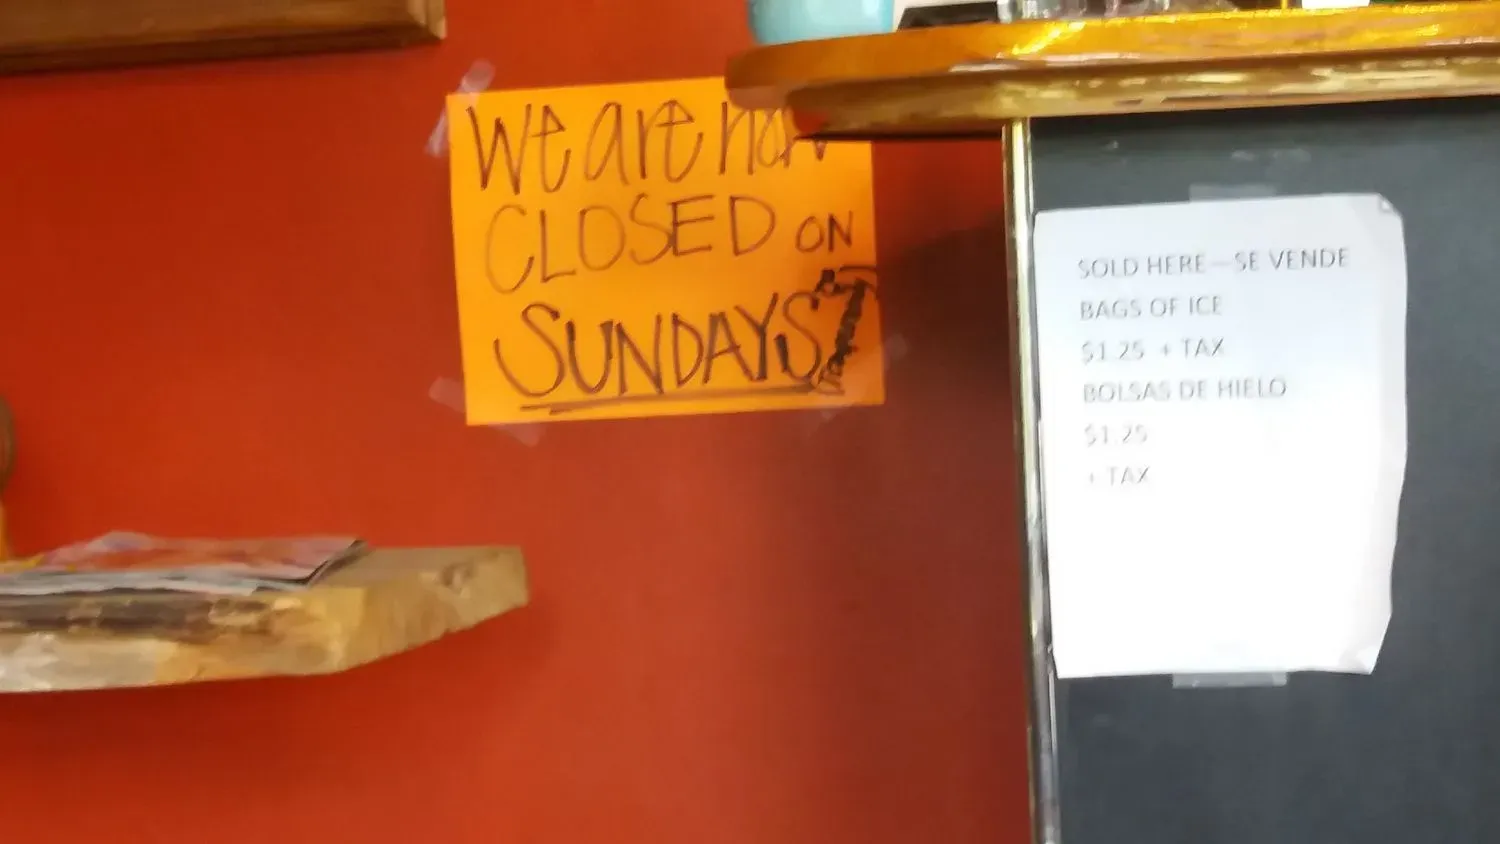 We are now
CLOSED ON
SUNDAYS
SOLD HERE – SE VENDE
BAGS OF ICE
$1.25 + TAX
BOLSAS DE HIELO
$1.25
+ TAX